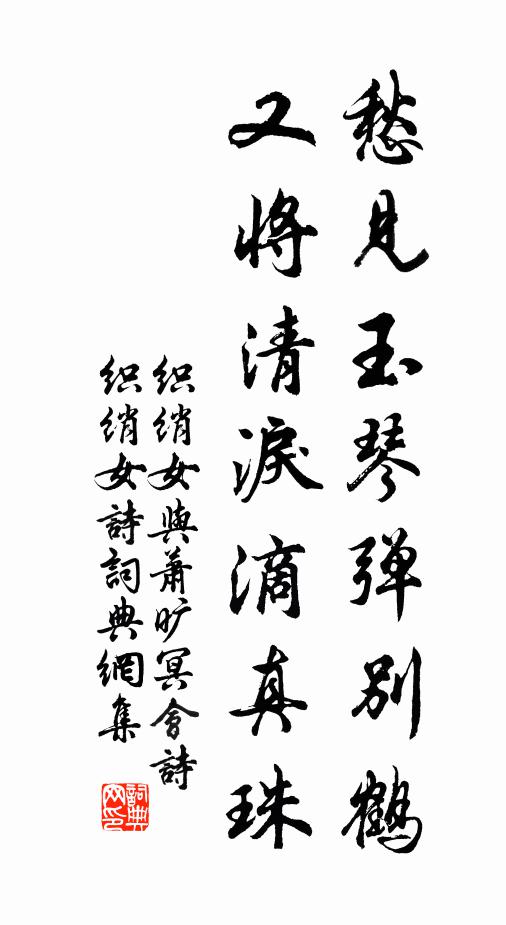 愁见玉琴弹别鹤
又将清淚滴真珠
织绡女與萧旷冥會詩
织绡女詩詞典網集
詞典网印